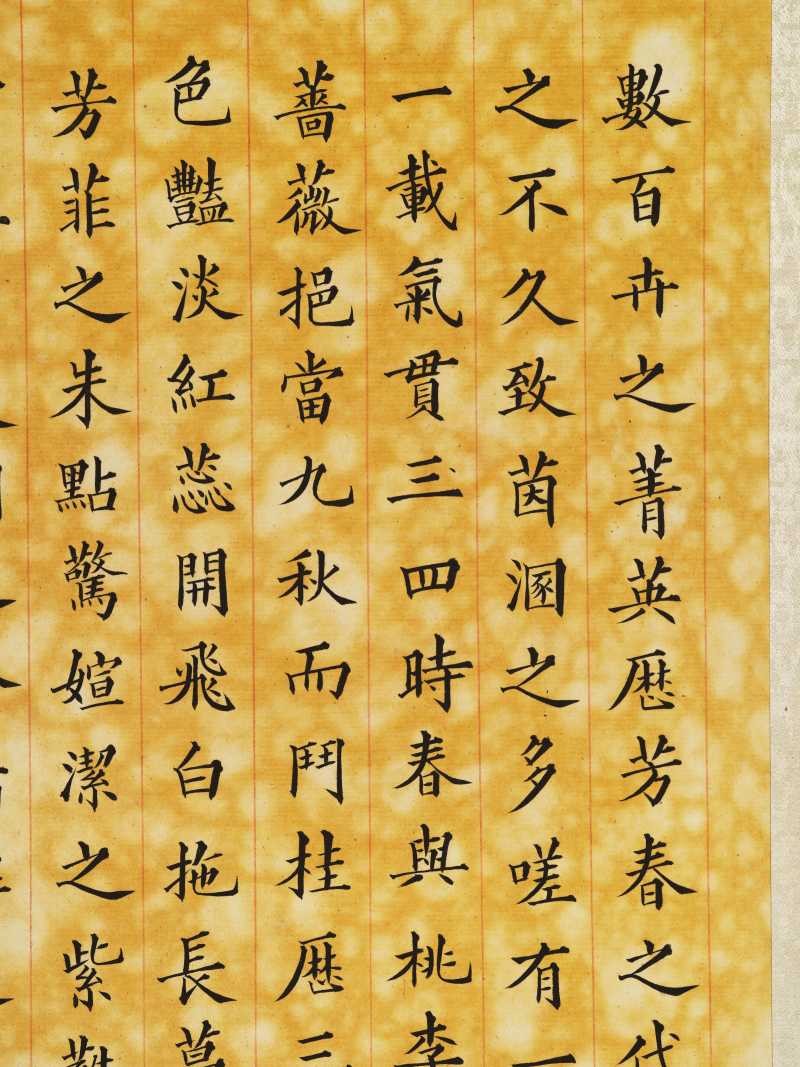 數百卉之菁英歷芳春之代
之不久致茵溷之多嗟有一
一載氣貫三四時春與桃李
薔薇挹當九秋而鬥桂歷三
色豔淡紅蕊開飛白拖長
芳菲之朱點驚媗潔之紫